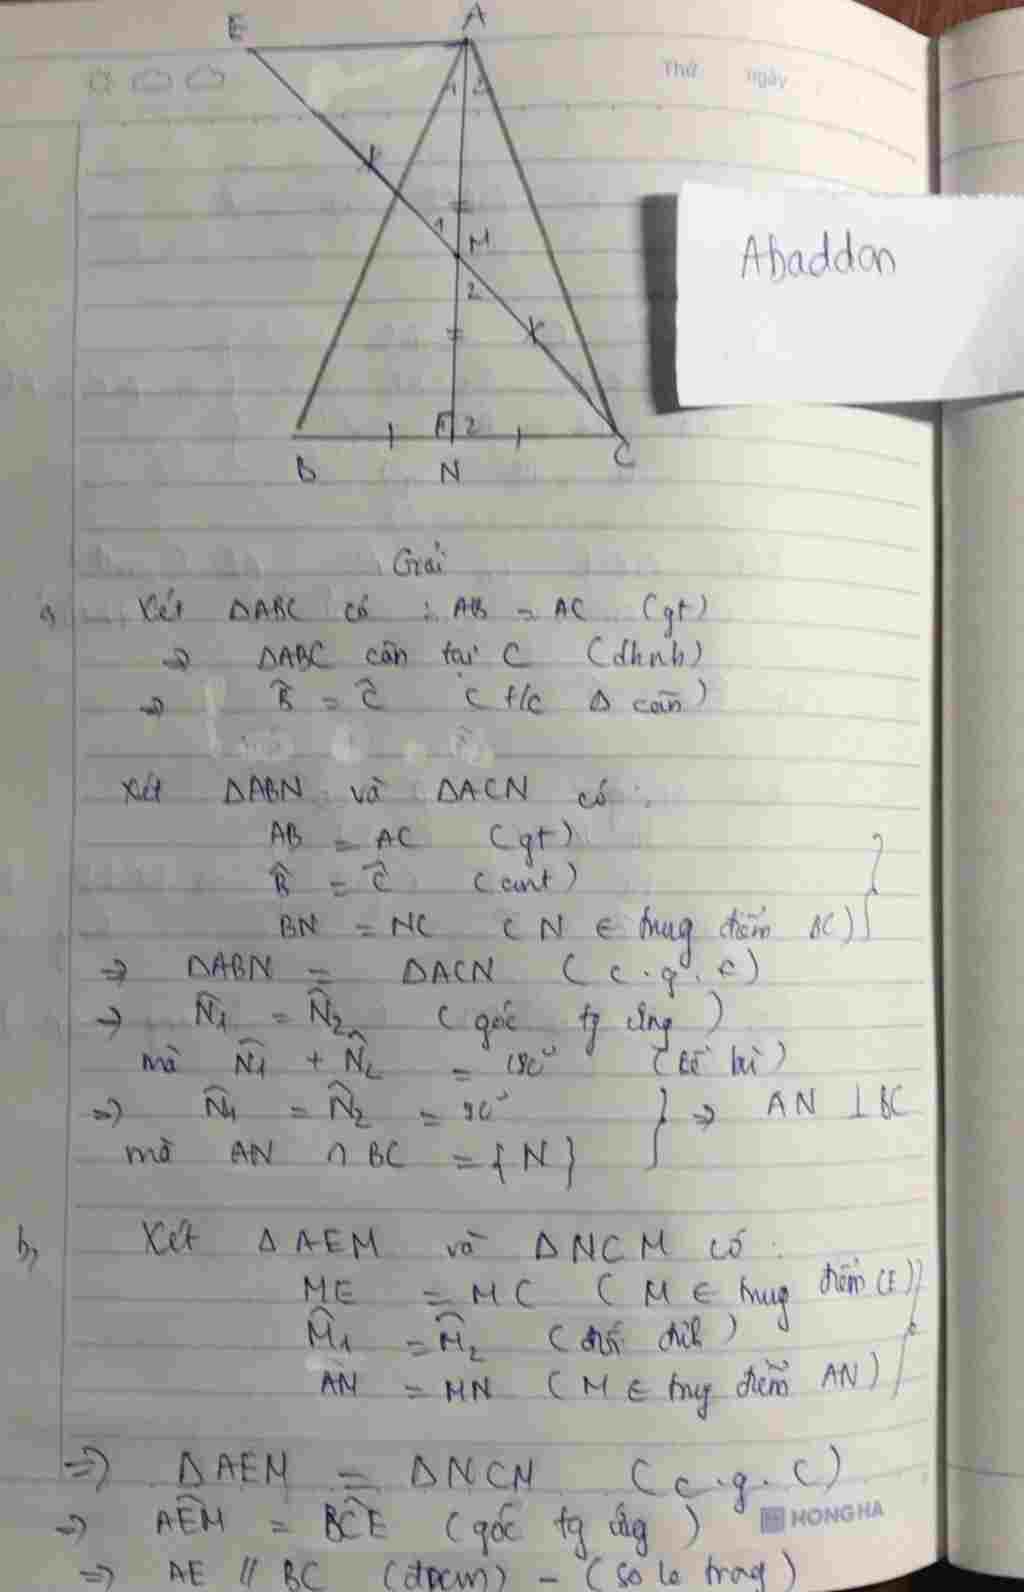 E A
Thứ ngày
1 2
Abaddon
1 M
2
1 2
B N C
Giải
a, Xét ΔABC có : AB = AC (gt)
=> ΔABC cân tại C (dhnb)
=> B̂ = Ĉ (t/c Δ cân)
Xét ΔABN và ΔACN có :
AB = AC (gt)
B̂ = Ĉ (cmt)
BN = NC (N ∈ trung điểm BC)
=> ΔABN = ΔACN (c.g.c)
=> N̂1 = N̂2 (góc tg ứng)
mà N̂1 + N̂2 = 180° (kề bù)
=> N̂1 = N̂2 = 90° => AN ⊥ BC
mà AN ∩ BC = {N}
b, Xét ΔAEM và ΔNCM có :
ME = MC (M ∈ trung điểm CE)
M̂1 = M̂2 (đối đỉnh)
AM = MN (M ∈ trung điểm AN)
=> ΔAEM = ΔNCM (c.g.c)
=> AÊM = BĈE (góc tg ứng) HONG HA
=> AE // BC (đpcm) - (so le trong)